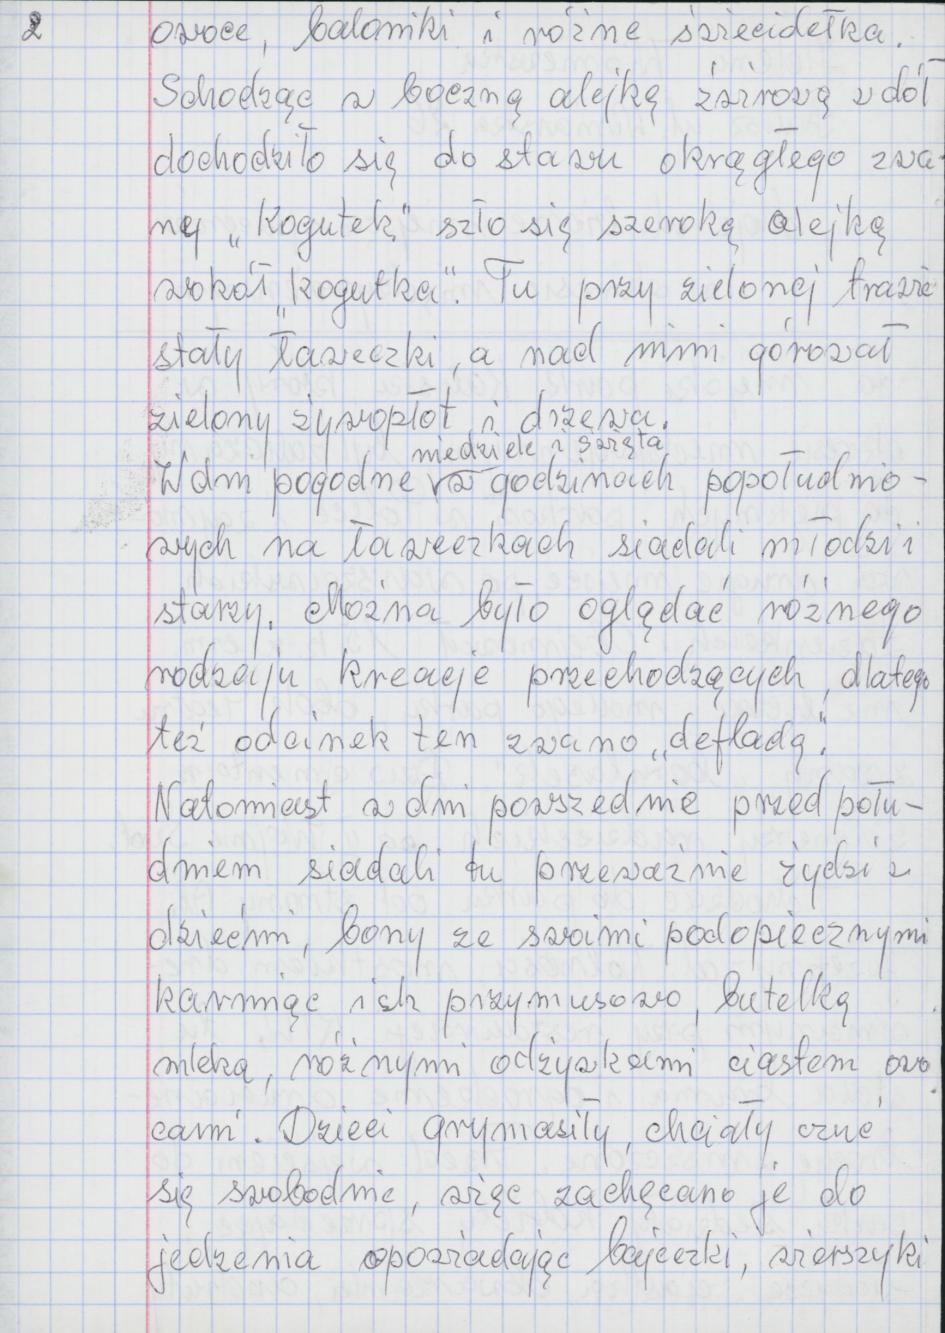 2
owoce, baloniki i różne świecidełka.
Schodząc w boczną alejką żwirową w dół
dochodziło się do stawu okrągłego zwa-
ny „Kogutek" szło się szeroką alejką
wokół „kogutka". Tu przy zielonej trawie
stały ławeczki, a nad nimi górował
zielony żywopłot i drzewa.
niedziele i święta
W dni pogodne w godzinach popołudnio-
wych na ławeczkach siadali młodzi i
starzy. Można było oglądać różnego
rodzaju kreacje przechodzących, dlatego
też odcinek ten zwano „defladą".
Natomiast w dni powszednie przed połu-
dniem siadali tu przeważnie żydzi z
dziećmi, bony ze swoimi podopiecznymi
karmiąc ich przymusowo, butelką
mleka, różnymi odżywkami ciastem owo
cami. Dzieci grymasiły, chciały czuć
się swobodnie, więc zachęcano je do
jedzenia opowiadając bajeczki, wierszyki